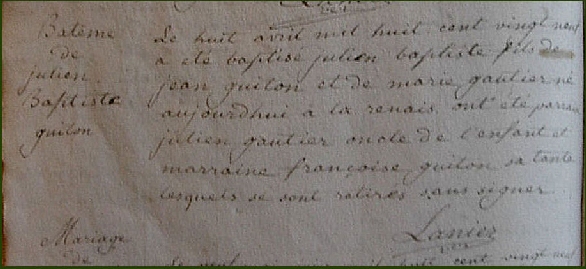 Batême
de
julien
Baptiste
guiton
Le huit avril mil huit cent vingt neuf
a eté baptisé julien baptiste fils de
jean guiton et de marie gautier né
aujourdhui à la renais. ont été parrain
julien gautier oncle de l'enfant et
marraine françoise guiton sa tante
lesquels se sont retirés sans signer
Lanier
Mariage
de
huit cent vingt neuf